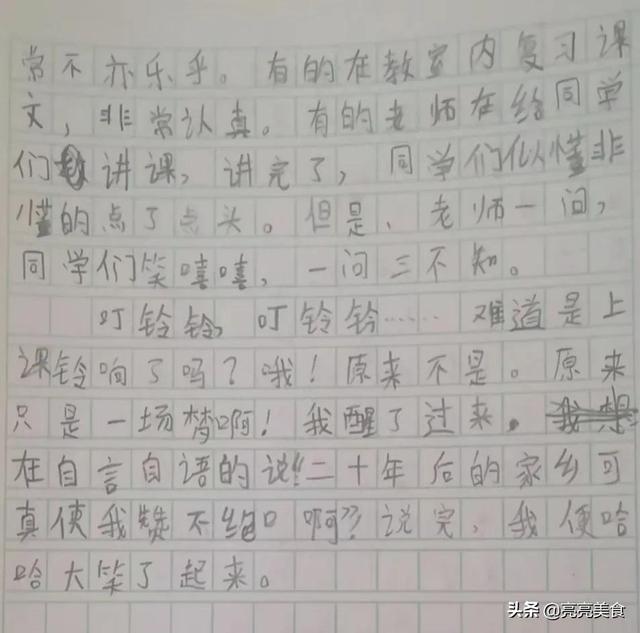 常不亦乐乎。有的在教室内复习课
文，非常认真。有的老师在给同学
们讲课，讲完了，同学们似懂非
懂的点了点头。但是、老师一问，
同学们笑嘻嘻，一问三不知。
叮铃铃，叮铃铃……难道是上
课铃响了吗？哦！原来不是。原来
只是一场梦啊！我醒了过来。我想
在自言自语的说“二十年后的家乡可
真使我赞不绝口啊”？说完、我便哈
哈大笑了起来。
头条@亮亮美食